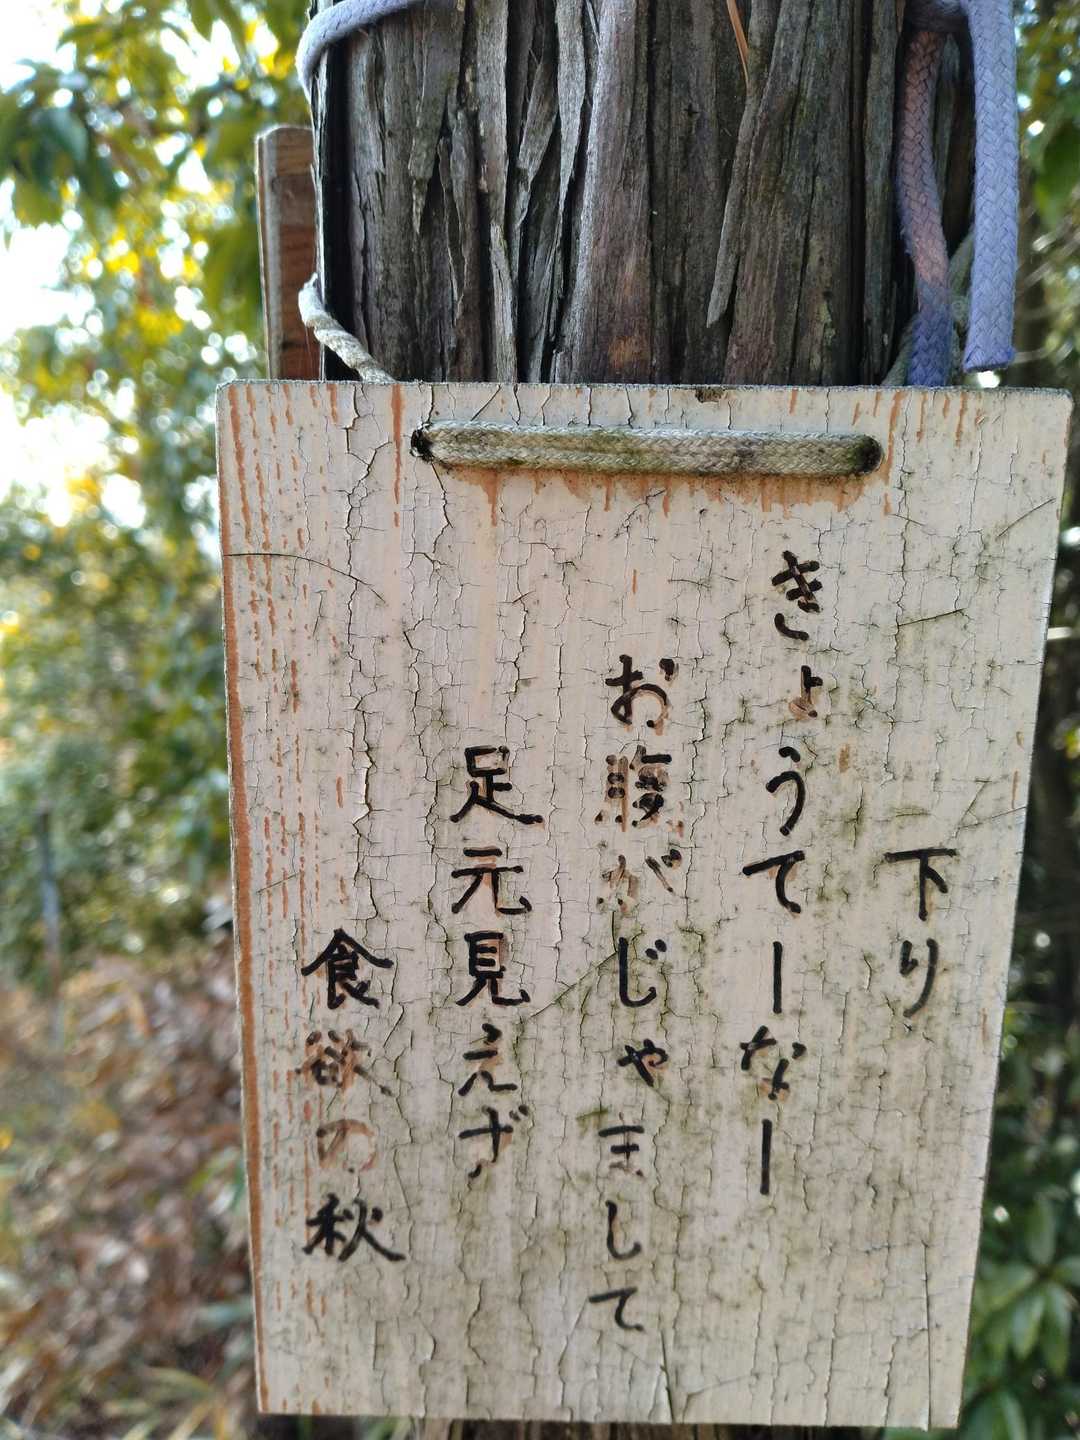 下り
きょうてーなー
お腹がじゃまして
足元見えず
食欲の秋